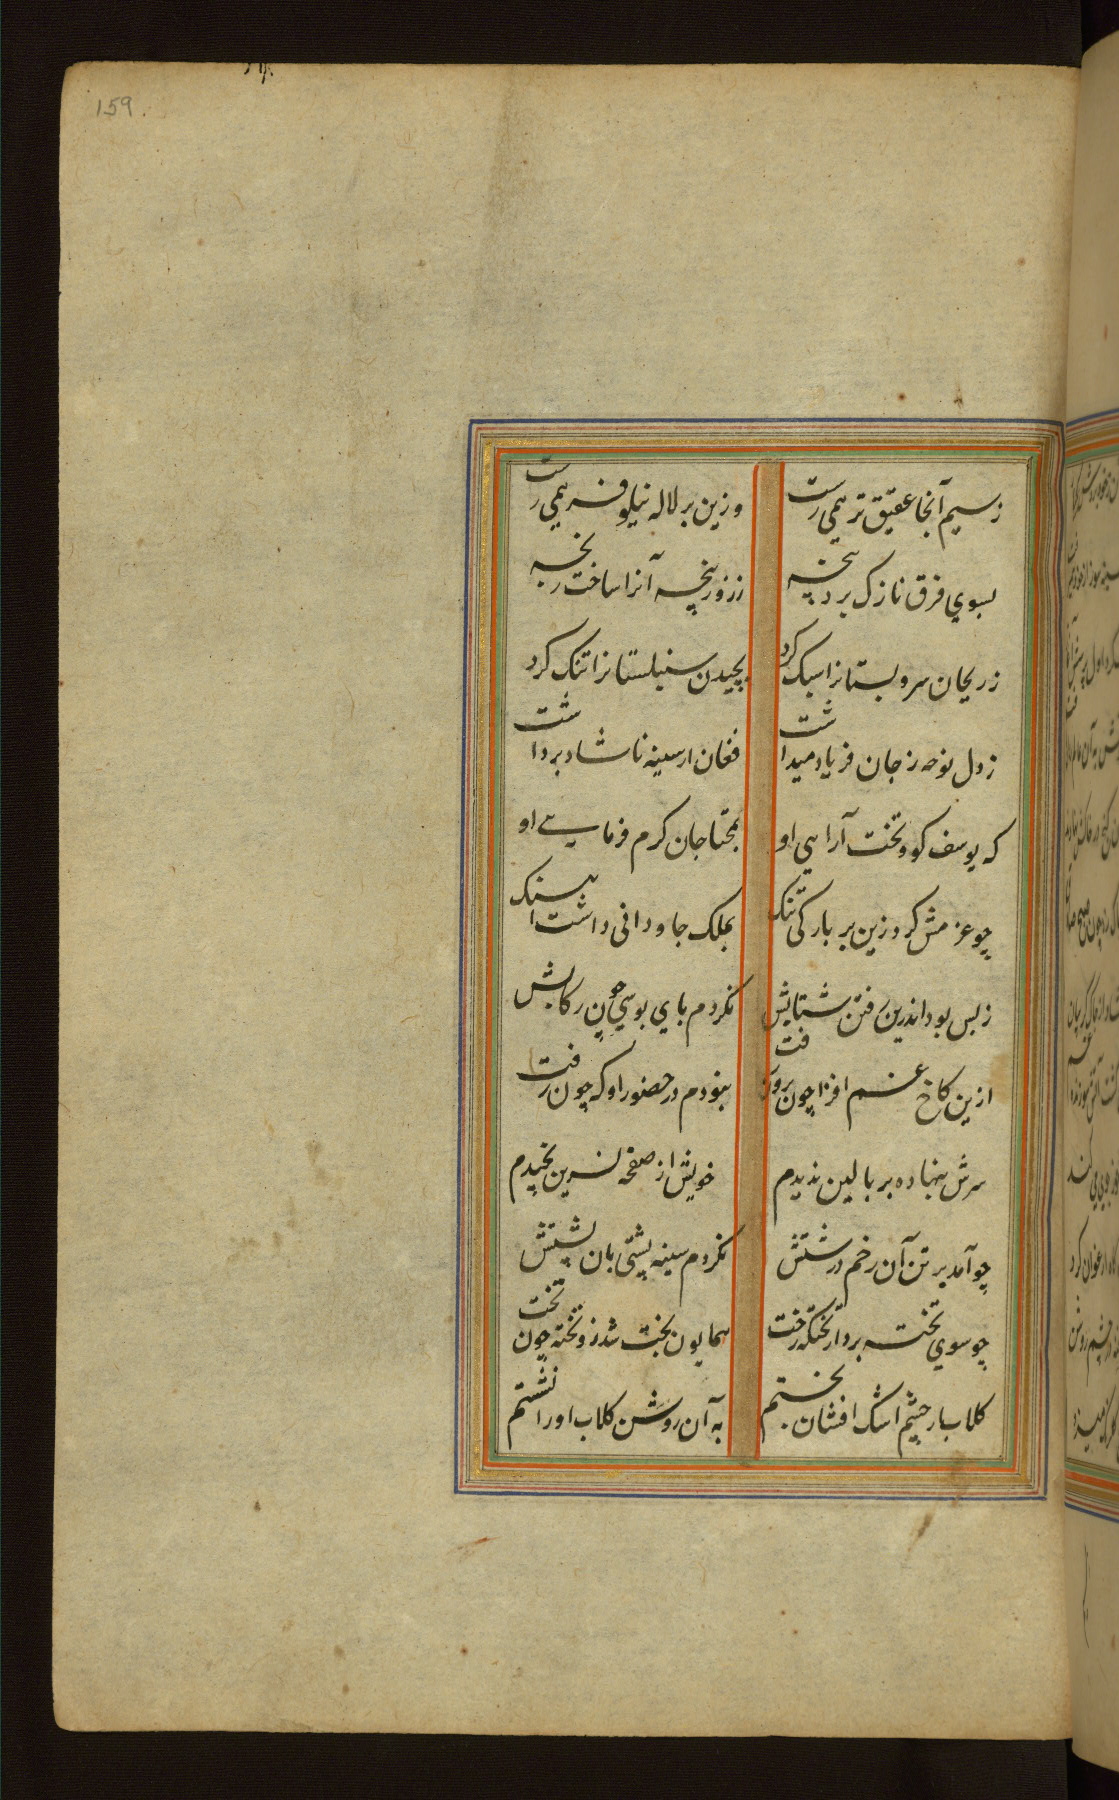 159.
ز سیم آنجا عقیق تر همی رست
وزین بر لاله نیلوفر همی رست
بسوی فرق نازک برد پنجه
ززور پنجه آنرا ساخت رنجه
ز ریحان سرو بستانرا سبک کرد
بچیدن سنبلستانرا تنک کرد
ز دل نوحه ز جان فریاد میداشت
فغان از سینه ناشاد برداشت
که یوسف کو و تخت آراهی او
بمحتاجان کرم فرمایی او
چو عزمش کرد زین بر بارکی تنک
بملک جاودانی داشت آهنگ
ز بس بود اندرین رفتن شتابش
نکردم پای بوسی چون رکابش
ازین کاخ غم افزا چون برون رفت
نبودم در حضور او که چون رفت
سرش بنهاده بر بالین ندیدم
خویش از صفحه نسرین نچیدم
چو آمد بر تن آن زخم درشتش
نکردم سینه پشتی بان پشتش
چو سوی تخته برد از تختکه رخت
همایون بخت شد زو تخته چون تخت
کلاب از چشم اشک افشان نجستم
به آن روشن کلاب او را نشستم